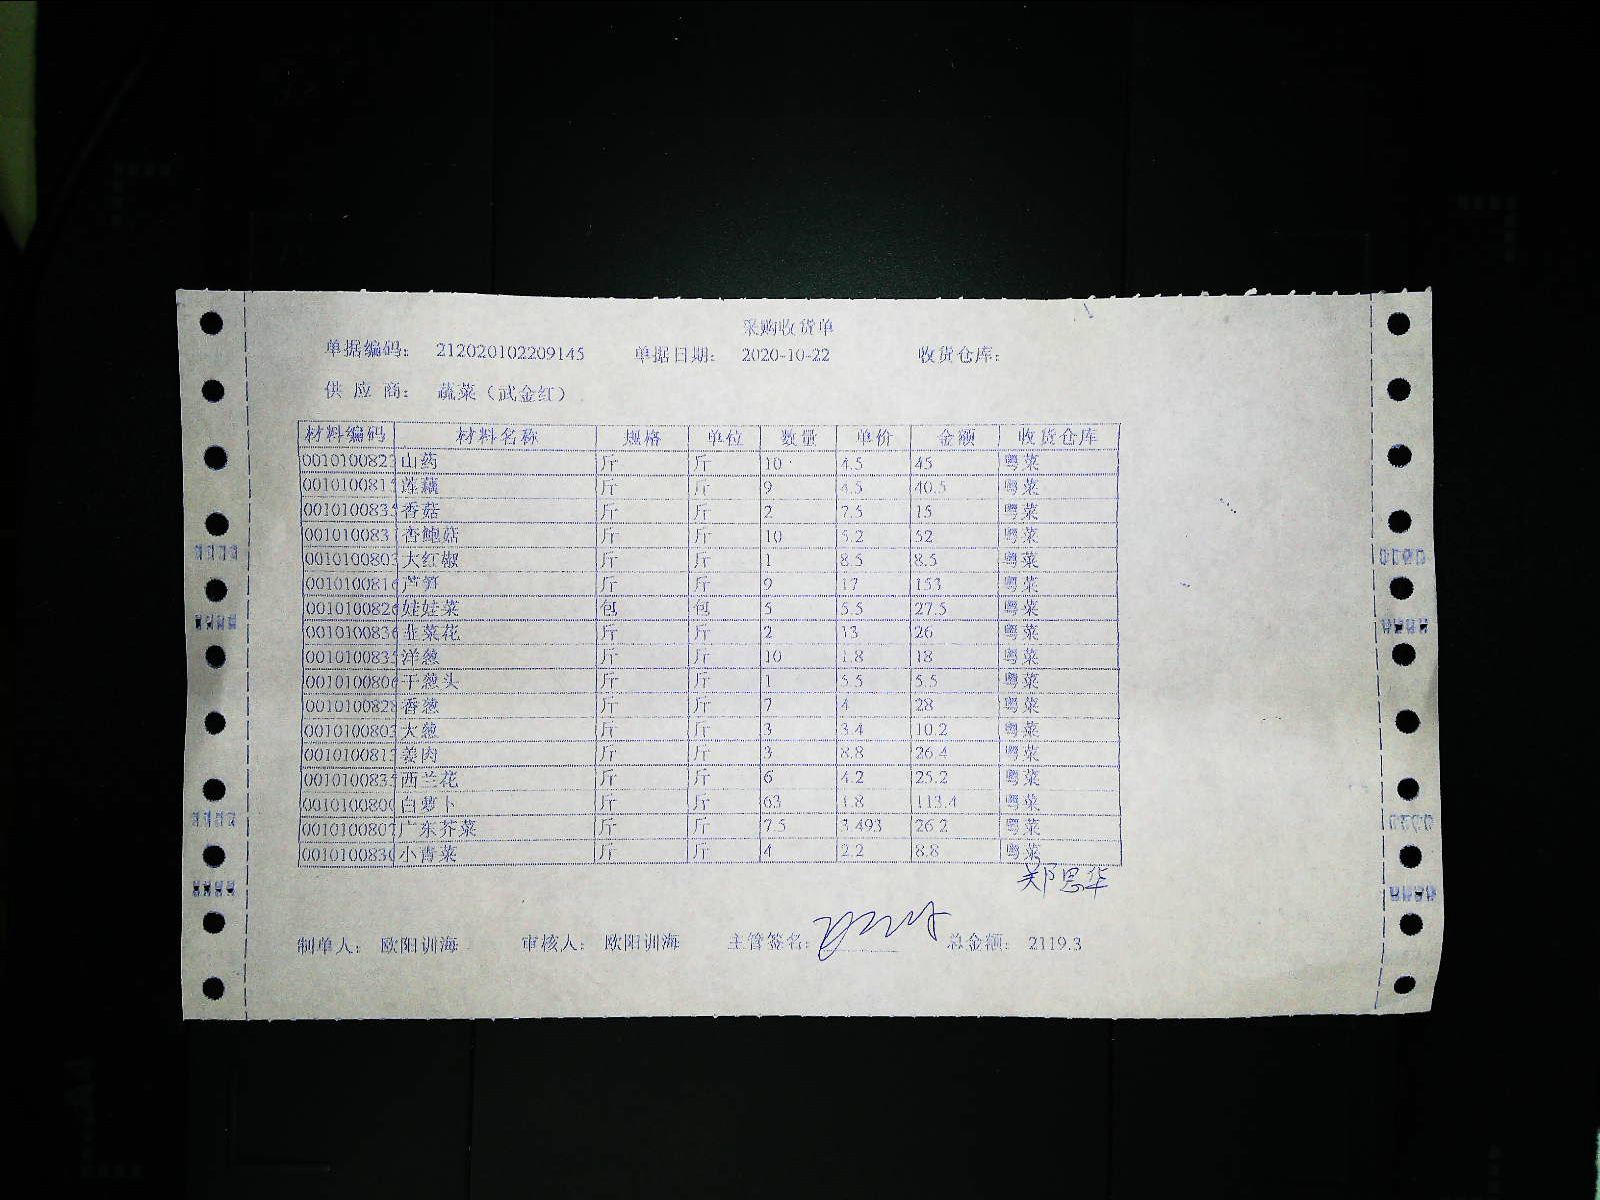 采购收货单
单据编码： 212020102209145 单据日期： 2020-10-22 收货仓库：
供 应 商： 蔬菜（武金红）
材料编码 材料名称 规格 单位 数量 单价 金额 收货仓库
001010082 山药 斤 斤 10 4.5 45 粤菜
001010081 莲藕 斤 斤 9 4.5 40.5 粤菜
001010083 香菇 斤 斤 2 7.5 15 粤菜
001010083 杏鲍菇 斤 斤 10 5.2 52 粤菜
001010080 大红椒 斤 斤 1 8.5 8.5 粤菜
001010081 芦笋 斤 斤 9 17 153 粤菜
001010082 娃娃菜 包 包 5 5.5 27.5 粤菜
001010083 韭菜花 斤 斤 2 13 26 粤菜
001010083 洋葱 斤 斤 10 1.8 18 粤菜
001010080 干葱头 斤 斤 1 5.5 5.5 粤菜
001010082 香葱 斤 斤 7 4 28 粤菜
001010080 大葱 斤 斤 3 3.4 10.2 粤菜
001010081 姜肉 斤 斤 3 8.8 26.4 粤菜
001010083 西兰花 斤 斤 6 4.2 25.2 粤菜
001010080 白萝卜 斤 斤 63 1.8 113.4 粤菜
001010080 广东芥菜 斤 斤 7.5 3.493 26.2 粤菜
001010083 小青菜 斤 斤 4 2.2 8.8 粤菜
郑恩华
制单人： 欧阳训海 审核人： 欧阳训海 主管签名： 总金额： 2119.3